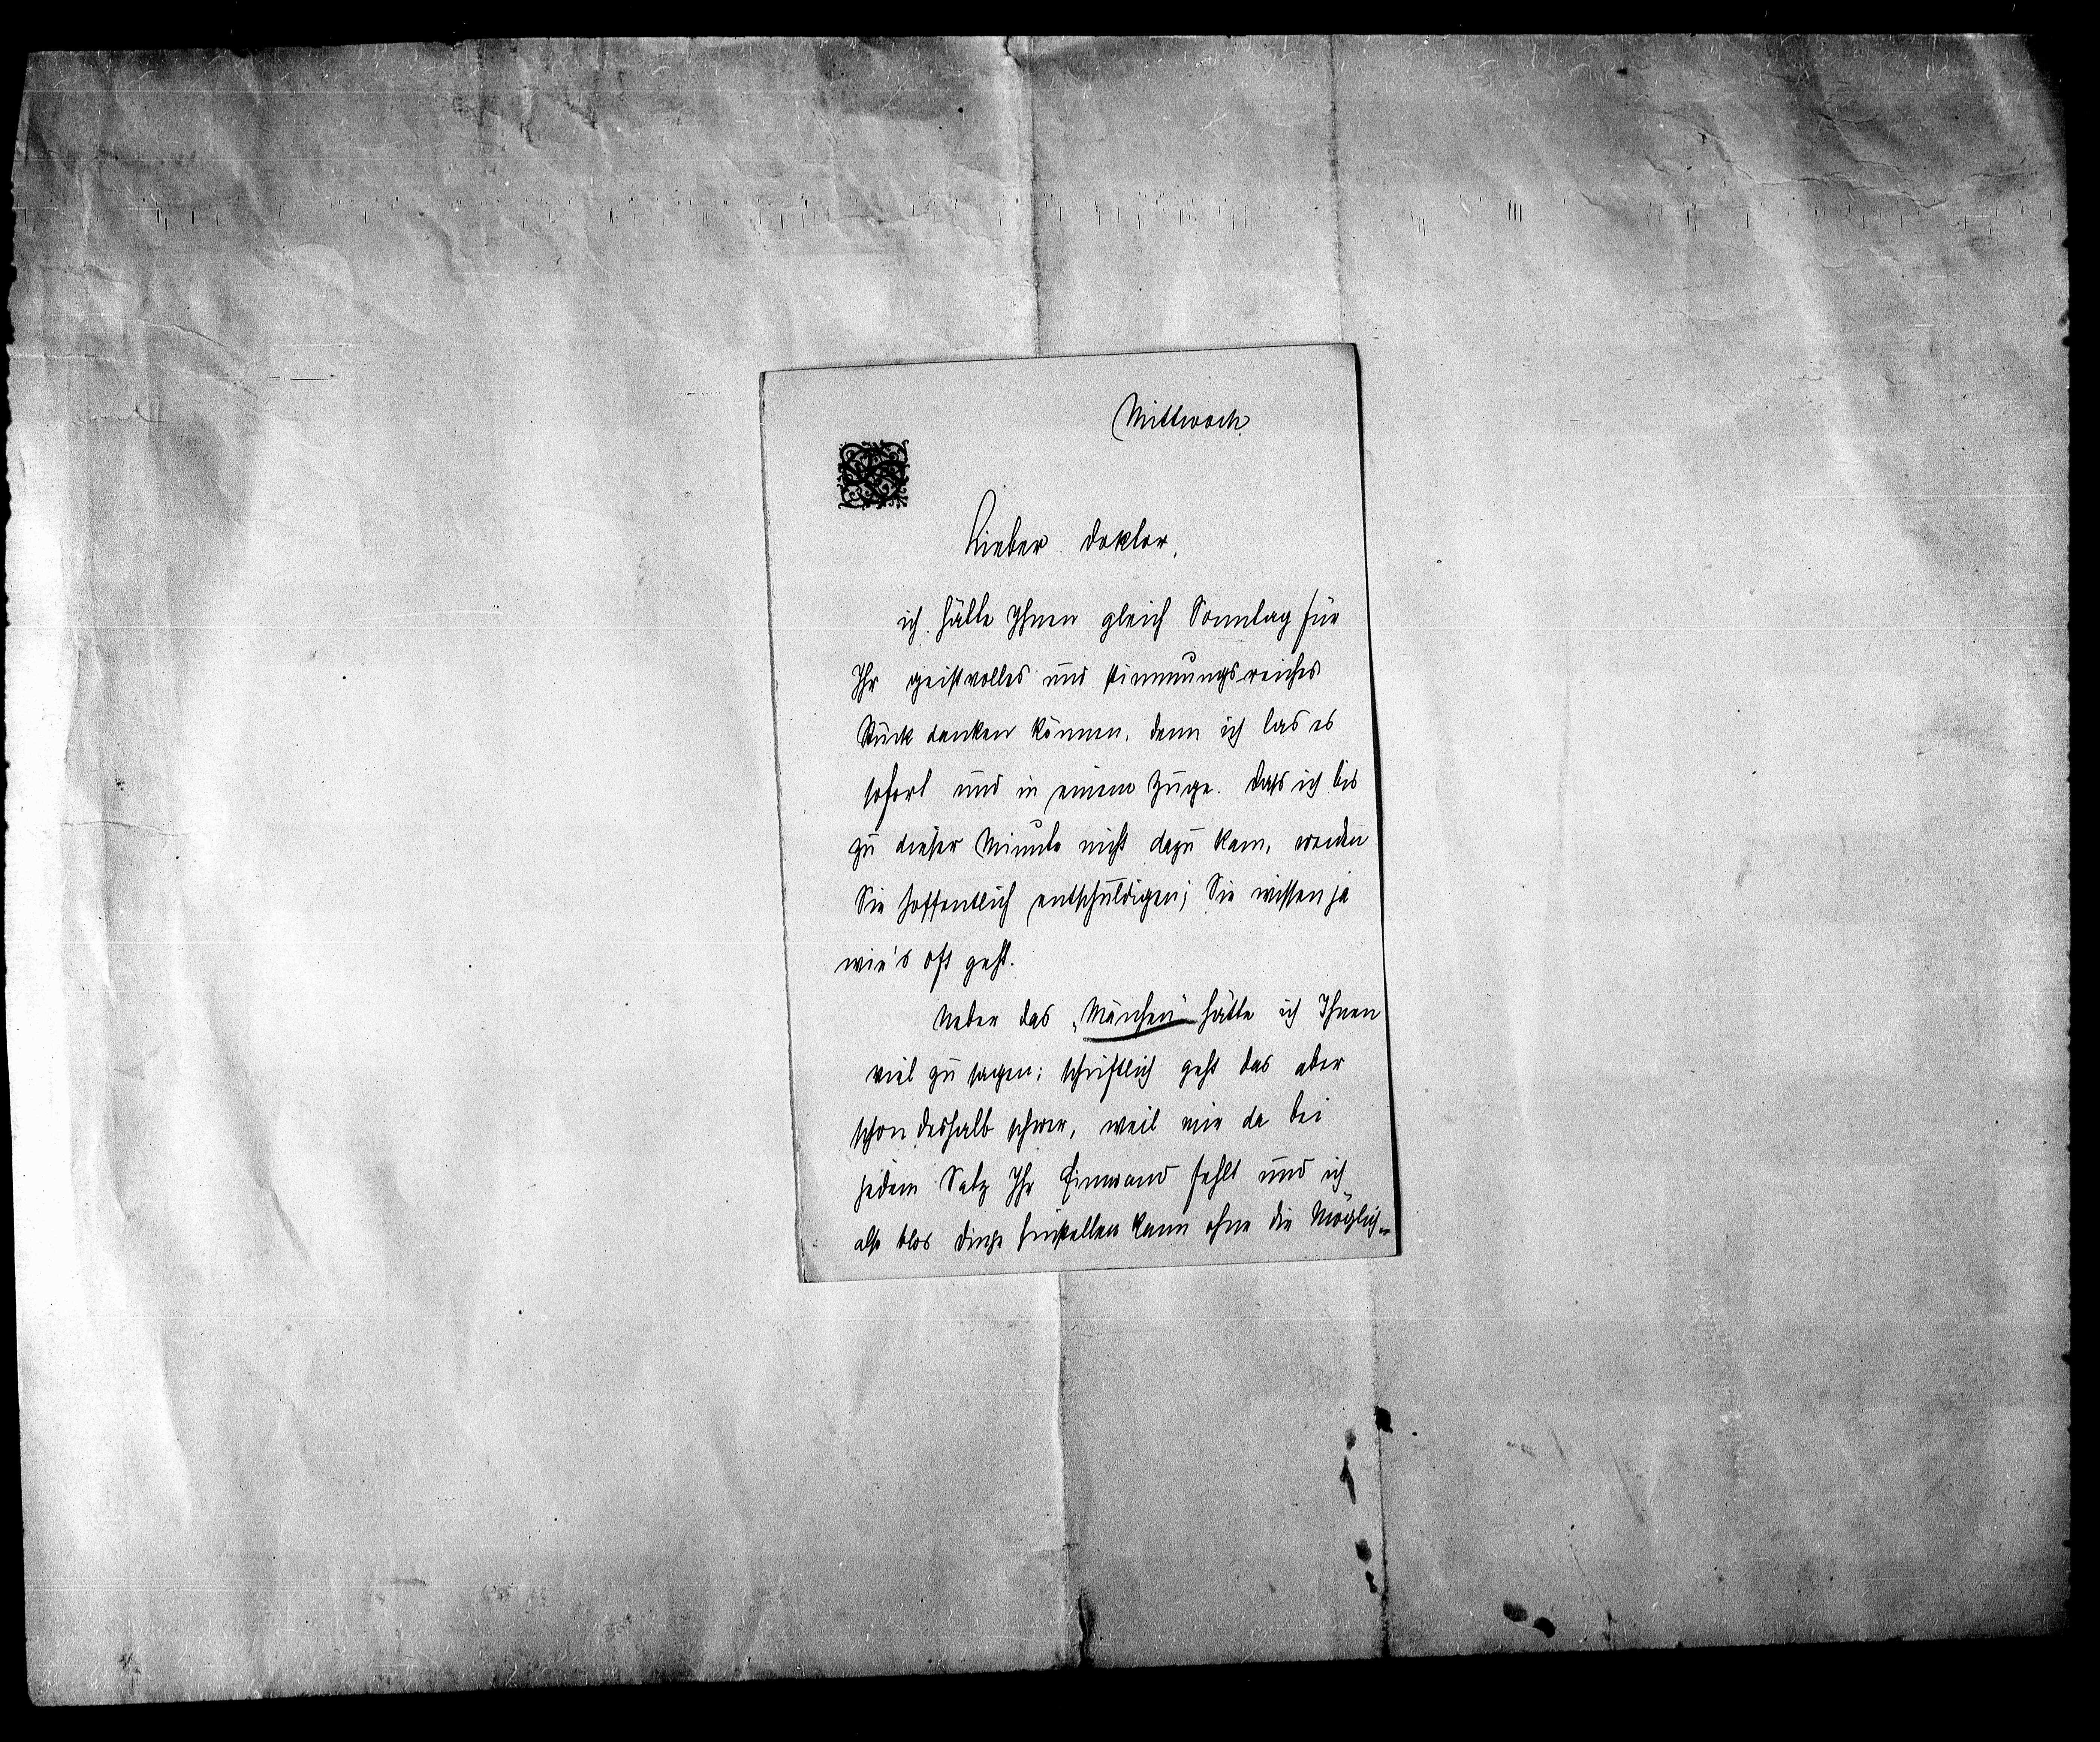 Mittwoch
Lieber Doktor,
ich hätte Ihnen gleich Sonntag für
Ihr geistvolles und stimmungsreiches
Stück danken können, denn ich las es
sofort und in einem Zuge. Dass ich bis
zu dieser Minute nicht dazu kam, werden
Sie hoffentlich entschuldigen; Sie wissen ja
wie's oft geht.
Ueber das „Märchen" hätte ich Ihnen
viel zu sagen; schriftlich geht das aber
schon deshalb schwer, weil mir da bei
jedem Satz Ihr Einwand fehlt und ich
also blos Dinge hinstellen kann ohne die Möglich-